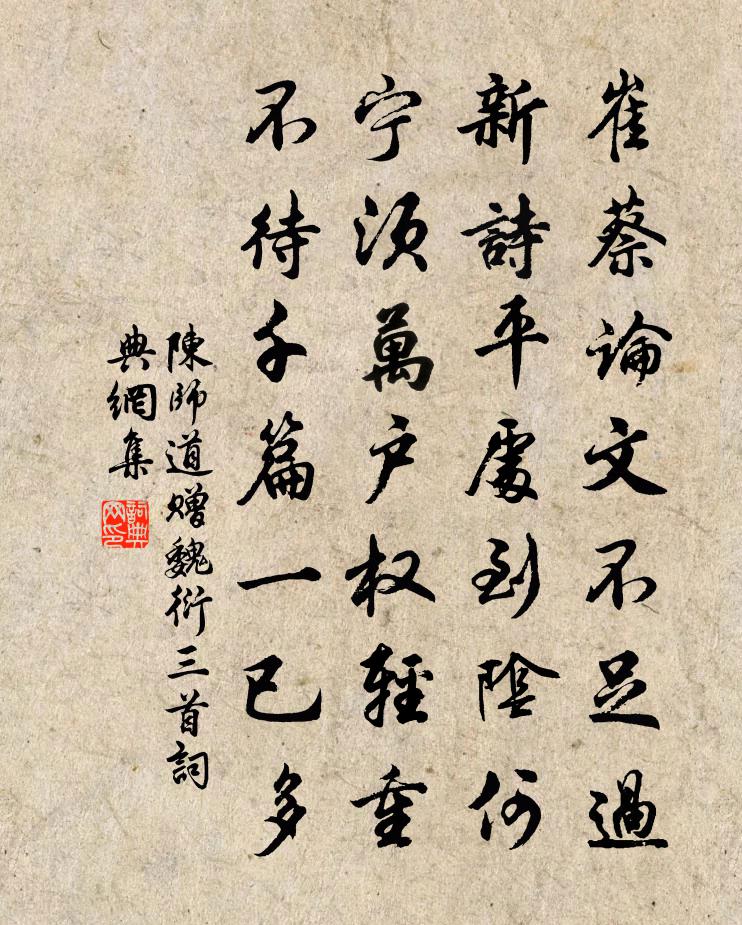 崔蔡論文不足過
新詩平處到陰何
宁須萬户权輕重
不待千篇一已多
陳師道赠魏衍三首詞
典網集
詞典
网印